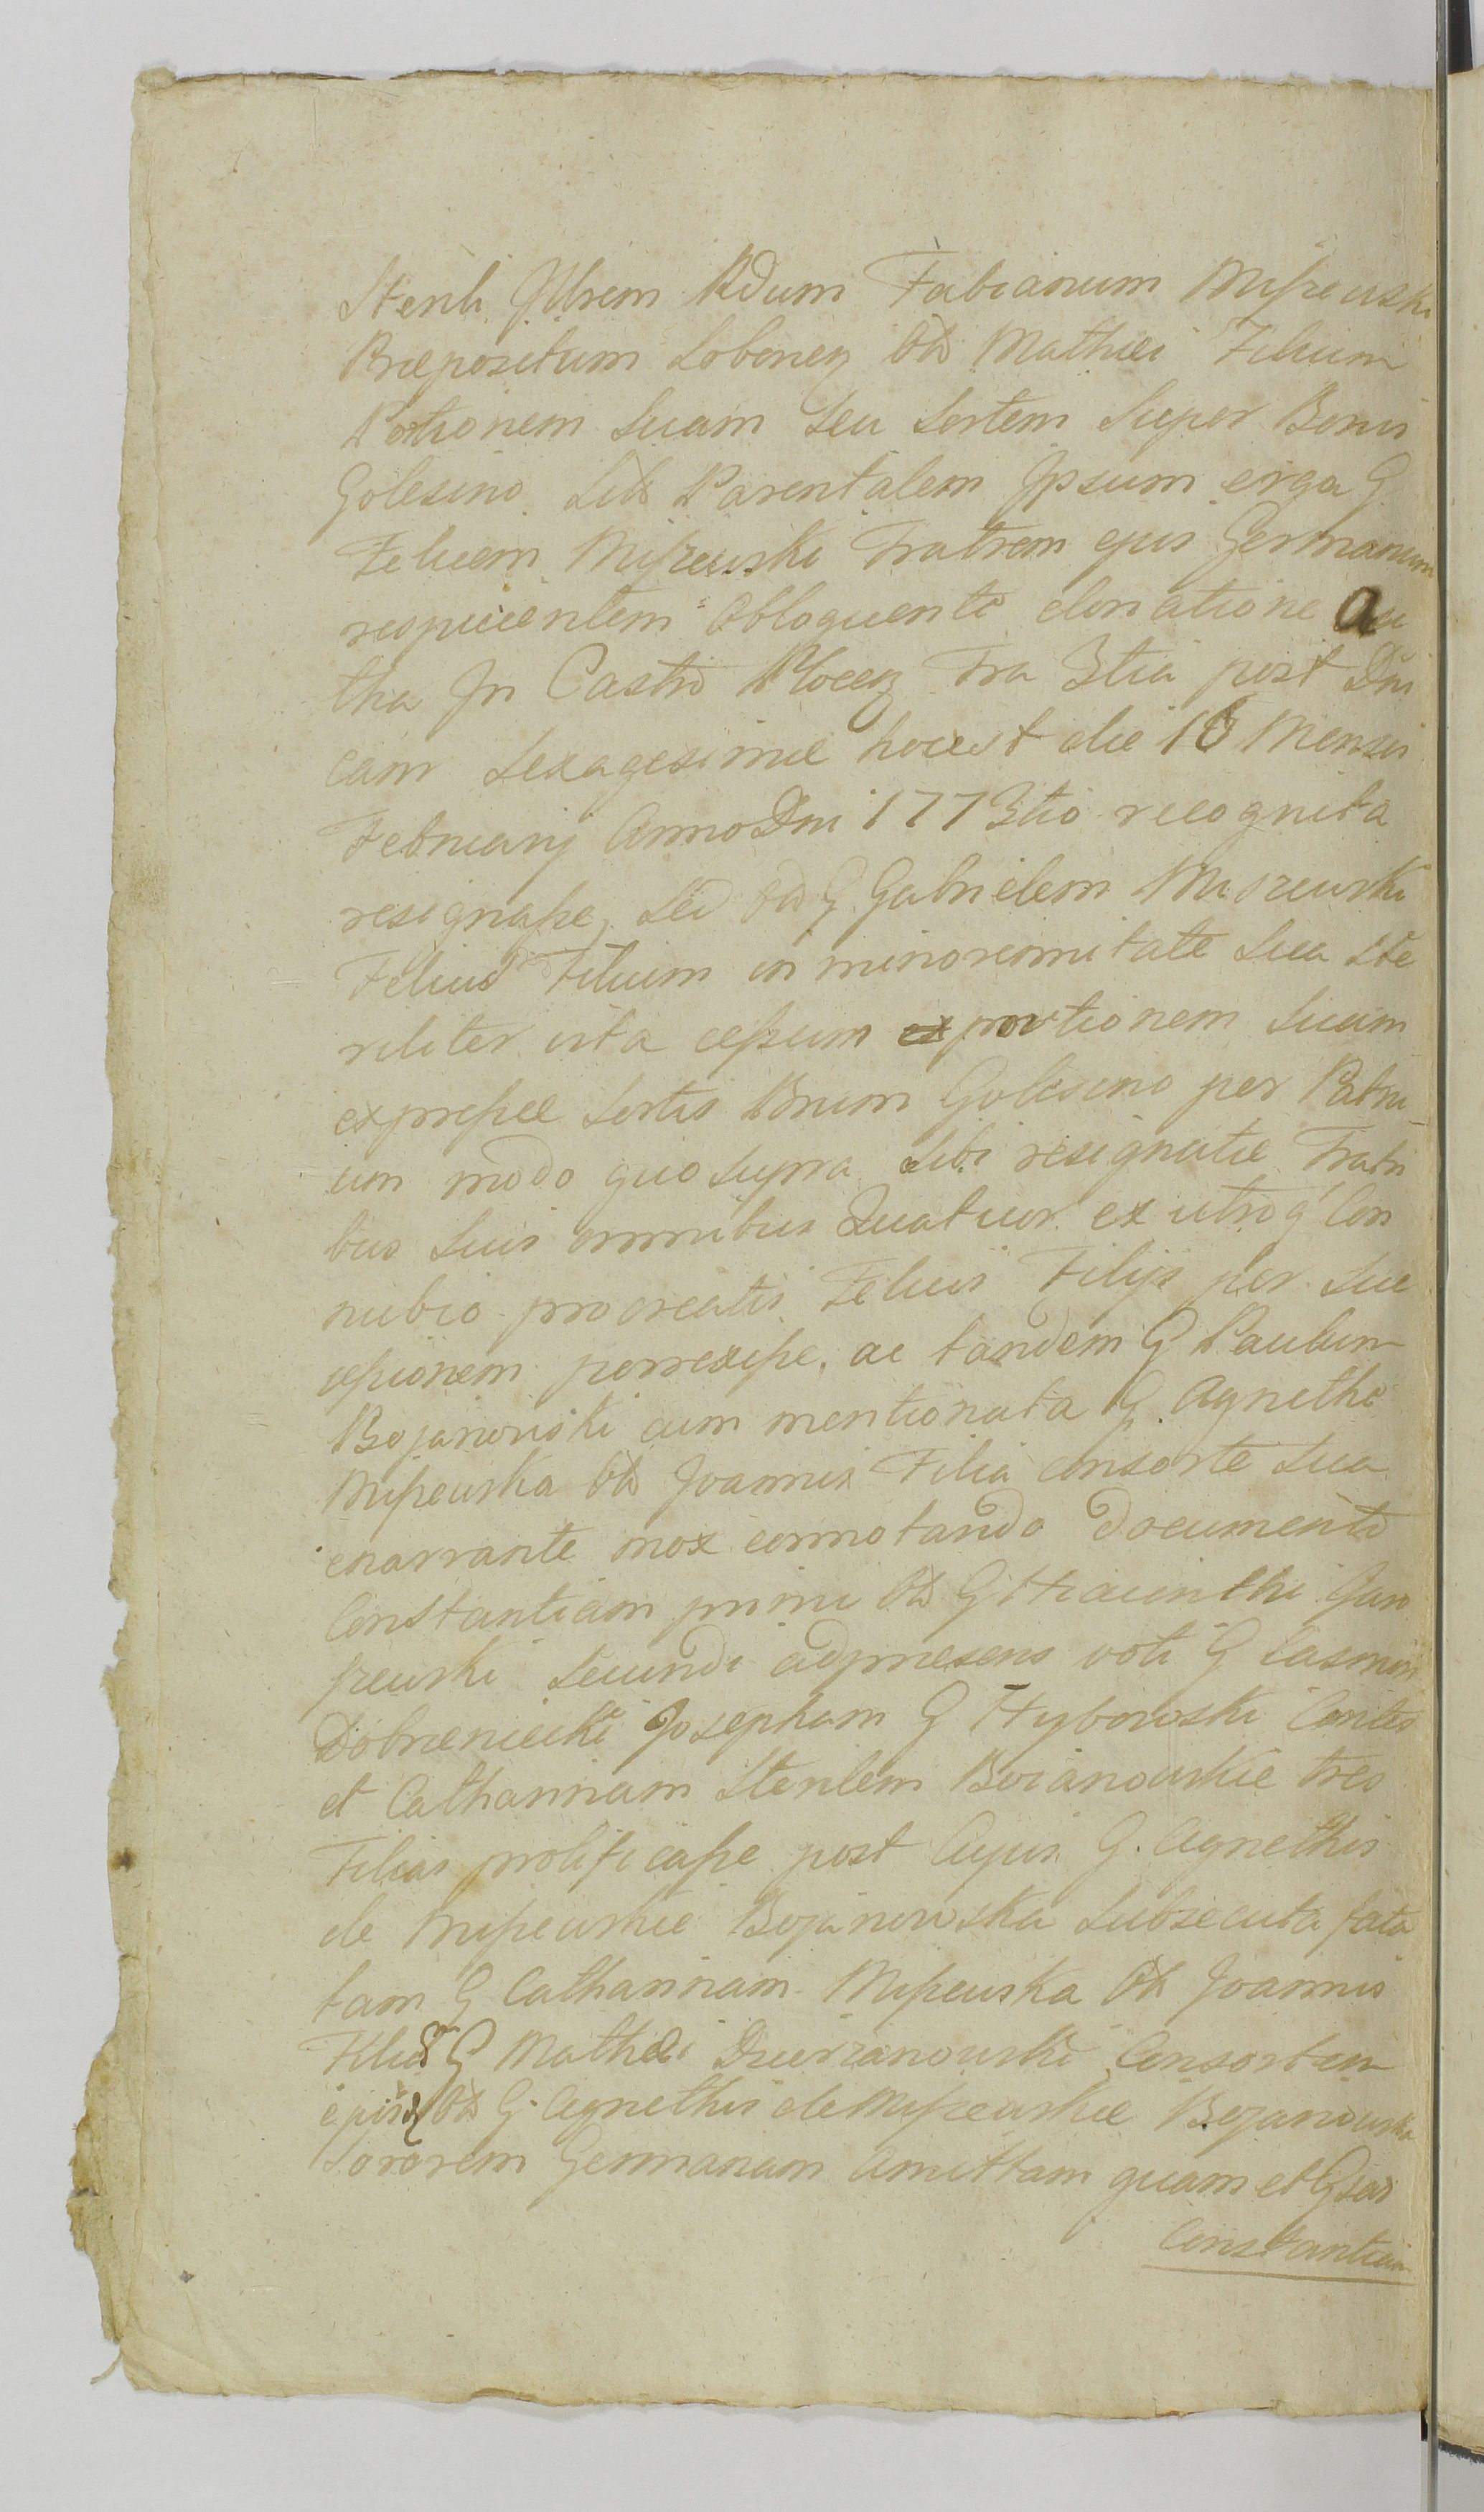 Sterili Illrem Rdum Fabianum Miszewski
Præpositum Lobenen Oth Mathiei Filium
Portionem Suam Seu Sortem Super Bonis
Golesino Sith Parentalem Ipsum erga G
Felicem Miszewski Fratrem ejus Germanum
respicientem Obloquente donatione a se
tha In Castro Plocen Fra 3tia post Dni
cam Sexagesimæ hocest die 16 Mensis
Februarij Anno Dni 1773tio recognita
resignasse, Sed Oth G Gabrielem Miszewski
Felicis Filium in minorennitate Sua Ste
riliter vita cessum portionem Suam
expresse Sortis Bnum Golesino per Patru
um modo quo Supra Sibi resignatæ Fratri
bus Suis omnibus Quatuor ex utroq Con
nubio procreatis Felicis Filijs per Suc
cessionem porrexisse, ac tandem G Paulum
Bojanowski cum mentionata G. Agnethe
Miszewska Oth Joannis Filia consorte Sua
enarrante mox connotando Documento
Constantiam primi Oth G Hiacinthi Gąso
szewski Secundi adpræsens voti G Casimiri
Dobrzeniecki Josepham G Hybowski Contes
et Catharinam Sterilem Boianowskie tres
Filias prolificasse post Cujus G. Agnethis
de Miszewskie Bojanowska Subsecuta fata
tam G Catharinam Miszewska Oth Joannis
Filia G Mathei Dzierzanowski Consortem
ejus Oth G. Agnethis de Miszewskie Bojanowska
Sororem Germanam Amittam quam et G
Constantiam